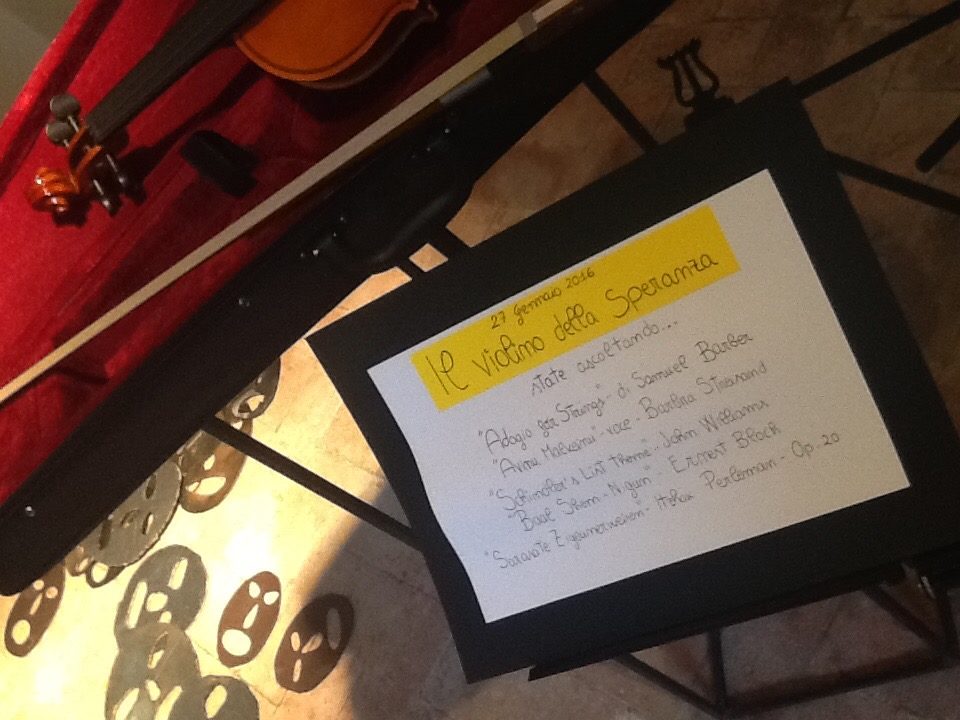 27 Gennaio 2016
Il violino della Speranza
state ascoltando...
"Adagio for Strings" di Samuel Barber
"Avinu Malkeinu" - voce - Barbra Streisand
"Schindler's List Theme" - John Williams
"Baal Shem - Nigun" - Ernest Bloch
"Sarasate Zigeunerweisen - Itzhak Perleman - Op. 20